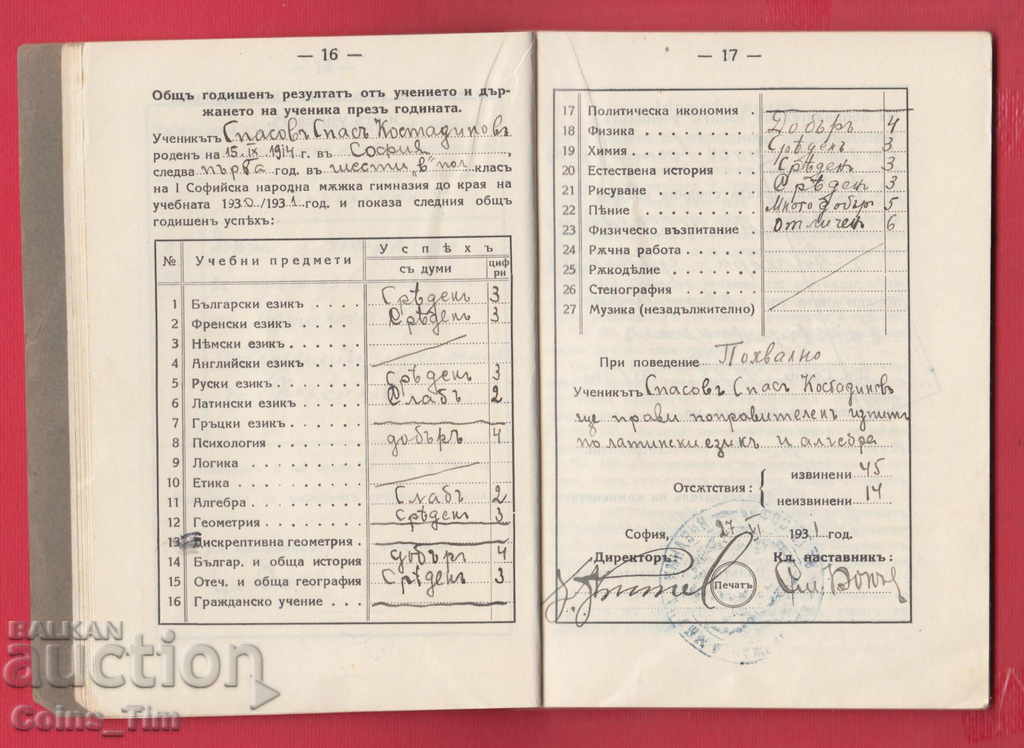 — 16 —
Общъ годишенъ резултатъ отъ учението и дър-
жането на ученика презъ годината.
Ученикътъ Спасовъ Спасъ Костадиновъ
роденъ на 15. IX 1914 г. въ София,
следва първа год. въ шести "в" пол. класъ
на I Софийска народна мѫжка гимназия до края на
учебната 1930/1931 год. и показа следния общъ
годишенъ успѣхъ:
№ Учебни предмети Успѣхъ
съ думи цифри
1 Български езикъ Срѣденъ 3
2 Френски езикъ Срѣденъ 3
3 Нѣмски езикъ
4 Английски езикъ
5 Руски езикъ Срѣденъ 3
6 Латински езикъ Слабъ 2
7 Гръцки езикъ
8 Психология добъръ 4
9 Логика
10 Етика
11 Алгебра Слабъ 2
12 Геометрия Срѣденъ 3
13 Дискрептивна геометрия
14 Българ. и обща история добъръ 4
15 Отеч. и обща география Срѣденъ 3
16 Гражданско учение
— 17 —
17 Политическа икономия
18 Физика Добъръ 4
19 Химия Срѣденъ 3
20 Естествена история Срѣденъ 3
21 Рисуване Срѣденъ 3
22 Пѣние Много добъръ 5
23 Физическо възпитание Отличенъ 6
24 Рѫчна работа
25 Рѫкоделие
26 Стенография
27 Музика (незадължително)
При поведение Похвално
Ученикътъ Спасовъ Спасъ Костадиновъ
ще прави поправителенъ изпитъ
по латински езикъ и алгебра
Отсѫтствия: извинени 45
неизвинени 14
София, 27 VI 1931 год.
Директоръ: Кл. наставникъ:
Печатъ
BALKAN
auction
Coins_Tim